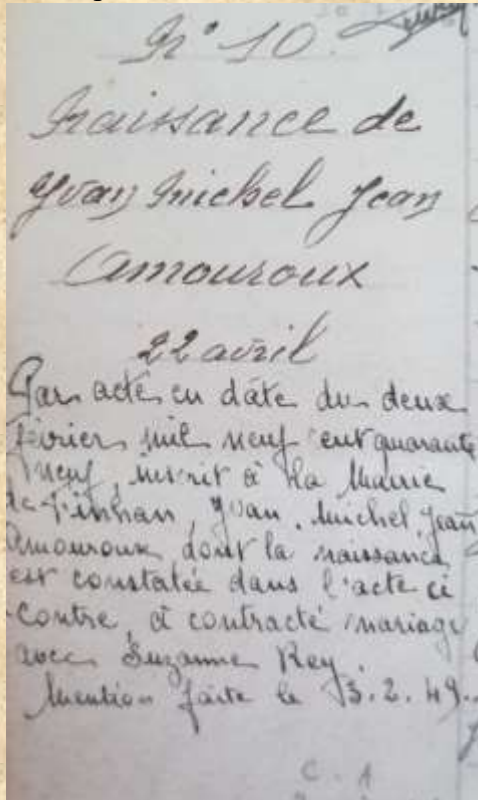 N° 10
Naissance de
Yvan Michel Jean
Amouroux
22 avril
Par acte en date du deux
février mil neuf cent quarante
neuf, inscrit à la Mairie
de Finhan, Yvan, Michel, Jean
Amouroux dont la naissance
est constatée dans l'acte ci
contre, a contracté mariage
avec Suzanne Rey.
Mention faite le 3.2.49.
C. 1